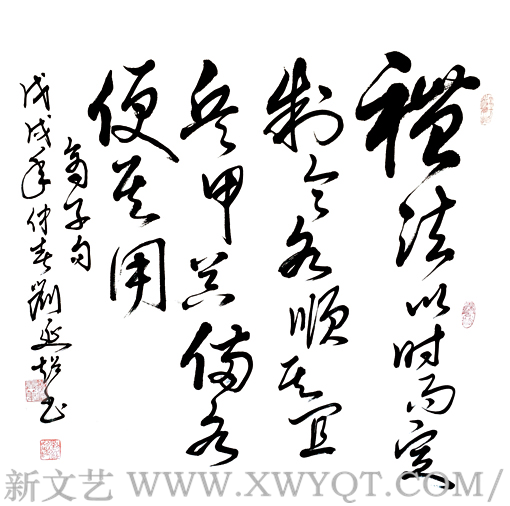 禮法以时而定
制令各順其宜
兵甲器備各
便其用
商子句
戊戌年仲春劉延超书
新文艺 WWW.XWYQT.COM/